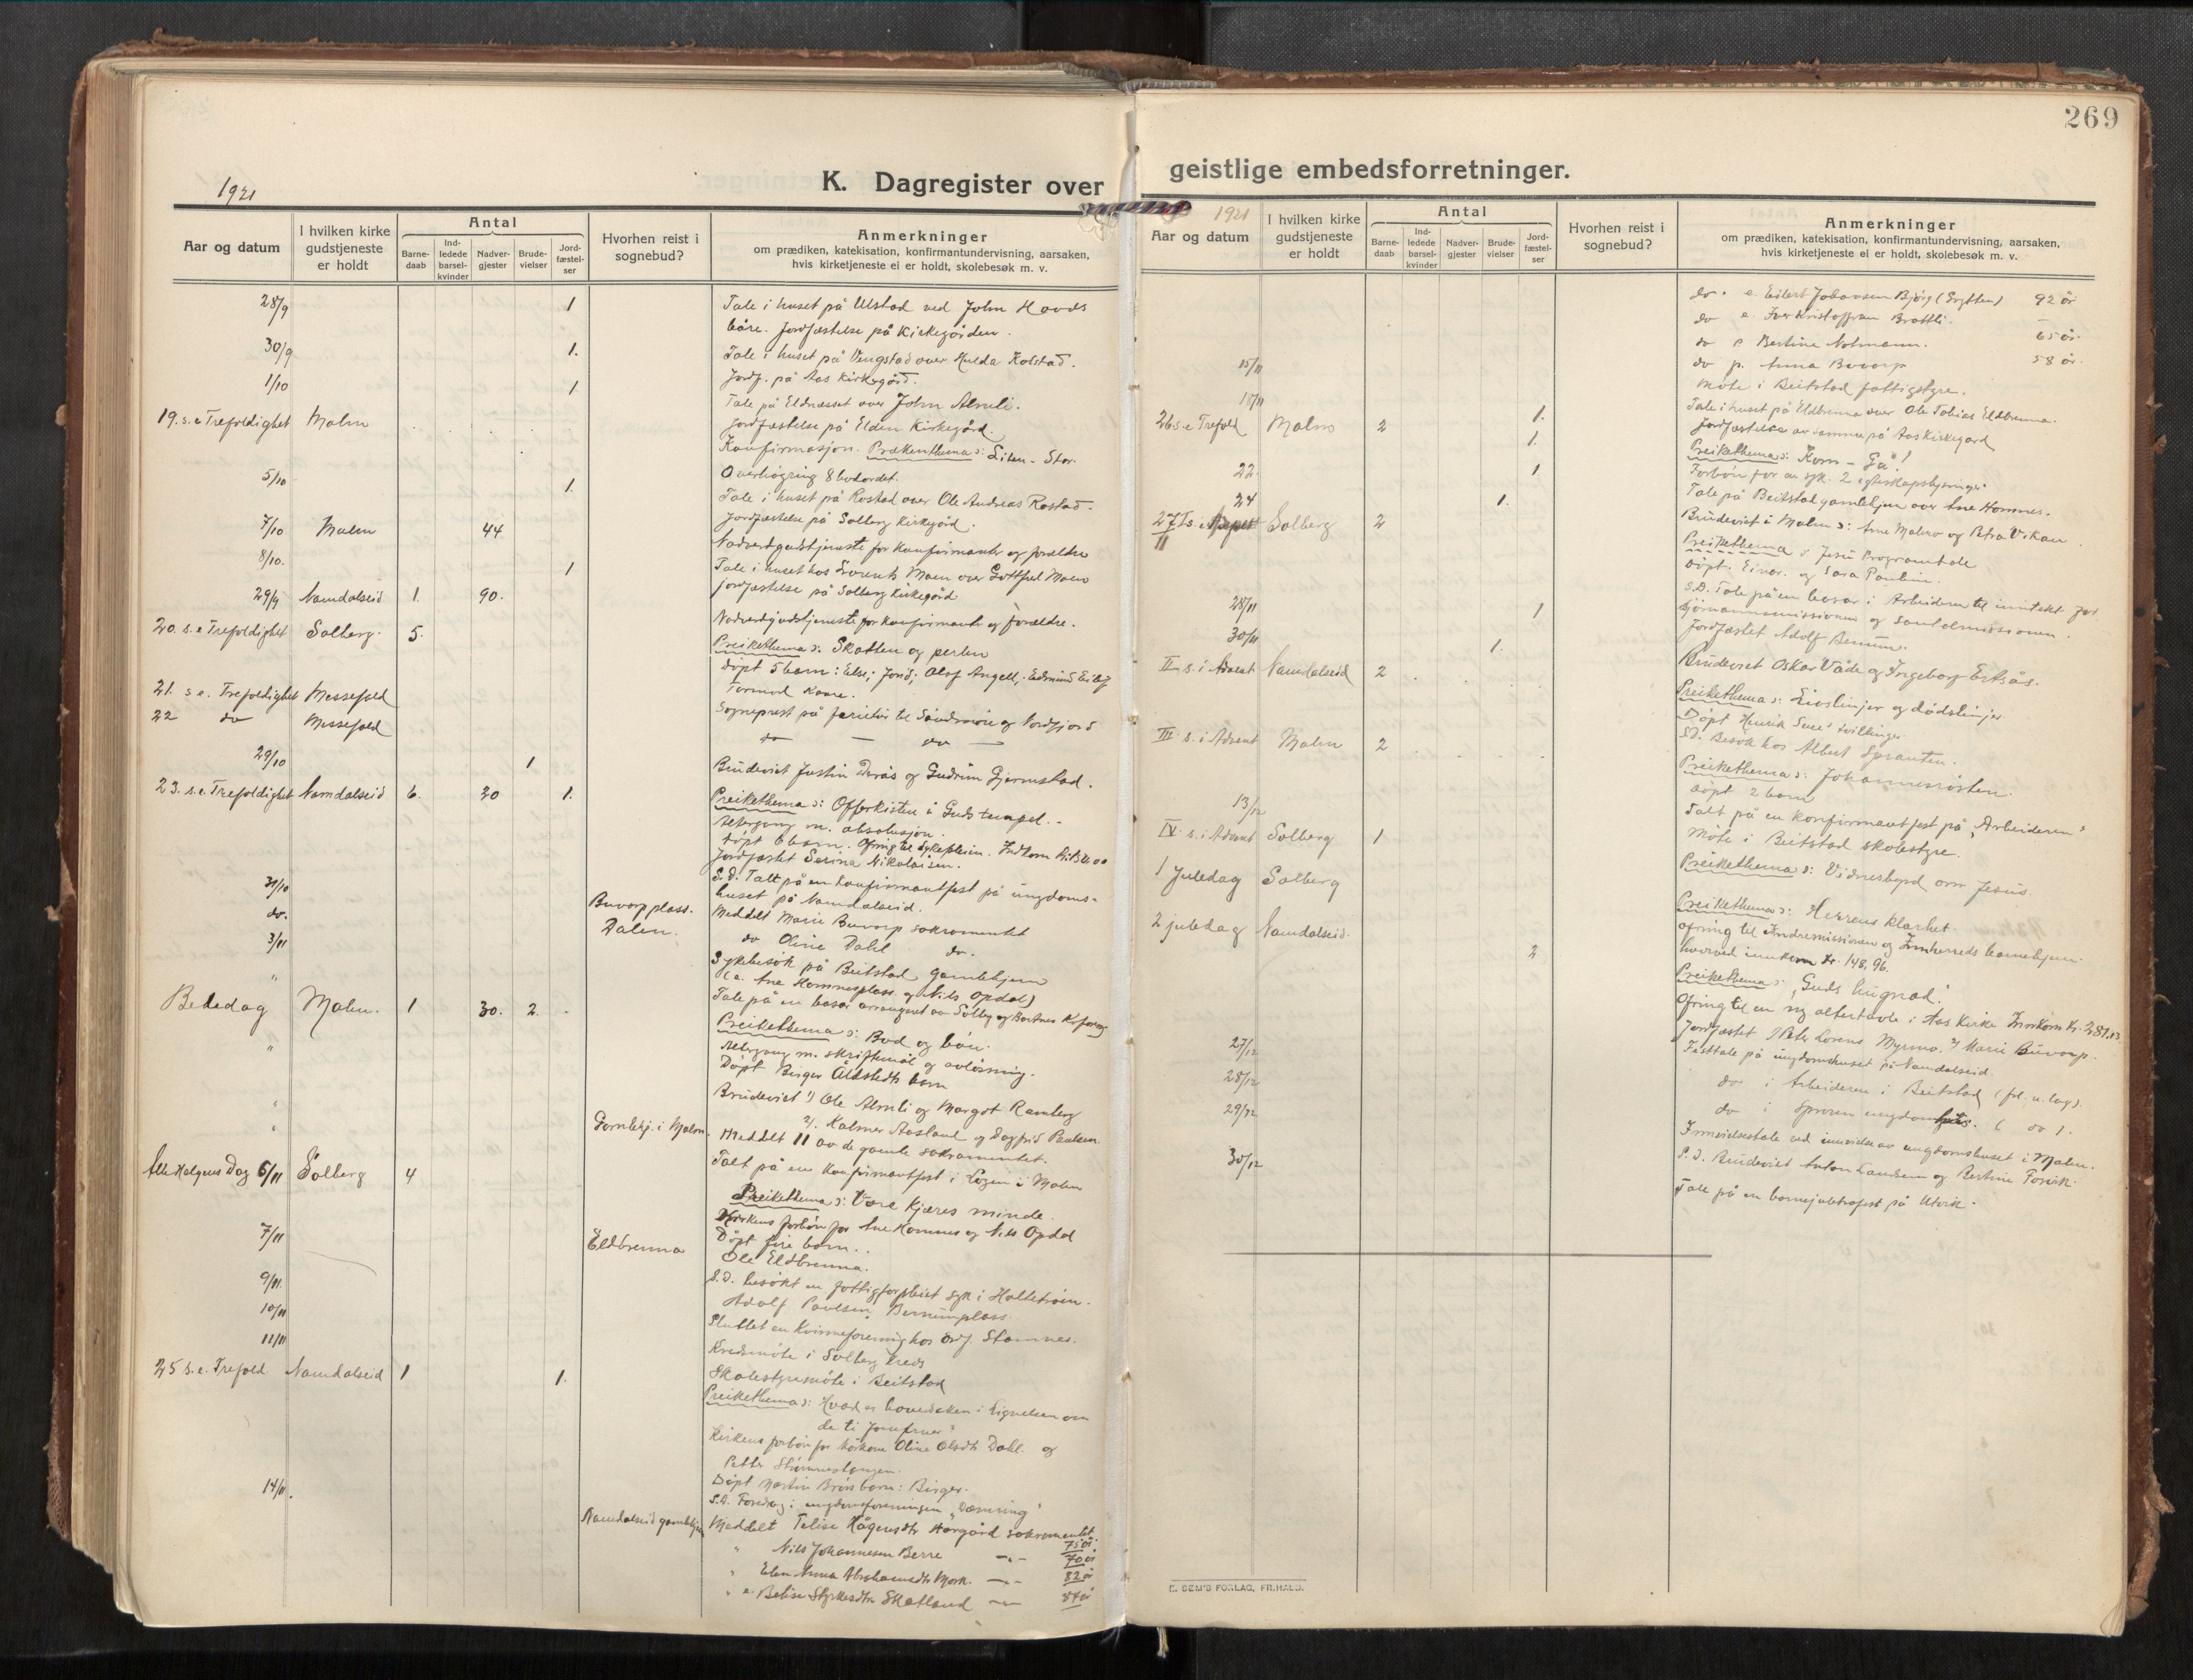 269
1921
K. Dagregister over
Aar og datum
I hvilken kirke gudstjeneste er holdt
Antal
Barne-daab
Ind-ledede barsel-kvinder
Nadver-gjester
Brude-vielser
Jord-fæstel-ser
Hvorhen reist i sognebud?
Anmerkninger
om prædiken, katekisation, konfirmantundervisning, aarsaken,
hvis kirketjeneste ei er holdt, skolebesøk m. v.
28/9 1 Tale i huset på Ulstad ved John Hovds
båre. Jordfæstelse på Kirkegården.
30/9 1. Tale i huset på Vengstad over Hulda Kolstad.
Jordf. på Aas Kirkegård.
1/10 1 Tale på Eldnesset over John Almli.
Jordfæstelse på Elden Kirkegård.
19. s. e Trefoldighet Malm Konfirmasjon. Prækenthema: Liten - Stor.
Overhøyring 8 budordet.
5/10 1. Tale i huset på Rostad over Ole Andreas Rostad.
Jordfæstelse på Solberg Kirkegård.
7/10 Malm 44 Nadverdgudstjeneste for konfirmanter og forældre
8/10. 1 Tale i huset hos Lorents Moen over Gottfred Moen
jordfæstelse på Solberg Kirkegård
29/9 Namdalseid 1. 90. Nadverdgudstjeneste for konfirmanter og forældre.
20. s. e Trefoldighet Solberg. 5. Preikethema: Skatten og perlen
Døpt 5 barn: Else; Jorid; Olaf Angell; Edmund Eilif
Tormod Kaare.
21. s e. Trefoldighet Messefald Sogneprest på ferietur til Søndmøre og Nordfjord
22 do Messefald do — do —
29/10 1 Brudeviet Justin Derås og Gudrun Gjermstad.
23. s. e. Trefoldighet Namdalseid 6. 30 1. Preikethema: Offerkisten i Guds tempel.
Altergang m. absolusjon.
Døpt 6 barn. Ofring til sykepleien.
Jordfæstet Serina Nikolaisen.
S. d. Talt på en konfirmantfest på ungdoms-
huset på Namdalseid.
31/10 Buvarp plass. Meddelt Marie Buvarp sakramentet
do. Dalen. do Oline Dahl do.
3/11 Sykebesøk på Beitstad gamlehjem
(a. Ane Hommesplass og Nils Opdal)
" Tale på en basar arrangert av Solby og Bartnes
Bededag Malm. 1 30. 2. Preikethema: Bod og bøn.
Altergang m. skriftemål og avløsning.
" Døpt Birger Åldstedts barn
Brudeviet 1) Ole Almli og Margot Ramberg
2) Halmar Aasland og Dagfrid Paulsen.
" Gamlehj. i Malm. Meddelt 11 av de gamle sakramentet.
" Talt på en konfirmantfest i Logen i Malm
Alle Helgens Dag 6/11 Solberg 4 Preikethema: Våre kjæres minde.
Kirkens forbøn for Ane Hommes og Nils Opdal
Døpt fire barn.
7/11 Eldbrenna Ole Eldbrenna.
S. D. besøkt en fattigforpleiet syk i Holletrøen.
Adolf Paulsen Bernumplass.
9/11. Sluttet en Kvinneforening hos ordf. Stamnes.
10/11 Kredsmøte i Solberg Kreds
11/11 Skolestyremøte i Beitstad
25 s. e. Trefold Namdalseid 1 1. Preikethema: Hvad er hovedsaken i Lignelsen om
de ti jomfruer?
Kirkens forbøn for Oline Olsdtr Dahl. og
Petter
Døpt Martin Brørs barn: Birger.
S. D. Foredrag i ungdomsforeningen "Dæmring"
14/11. Namdalseid gamlehjem Meddelt Telise Hågensdtr Horgård sakramentet. 75 år.
" Nils Johannesen Berre —"— 70 år
" Elen Anna Abrahamsdtr Mork. —"— 82 år
" e. Betise Styrkesdtr Sketland —"— 84 år
geistlige embedsforretninger.
1921
Aar og datum
I hvilken kirke gudstjeneste er holdt
Antal
Barne-daab
Ind-ledede barsel-kvinder
Nadver-gjester
Brude-vielser
Jord-fæstel-ser
Hvorhen reist i sognebud?
Anmerkninger
om prædiken, katekisation, konfirmantundervisning, aarsaken,
hvis kirketjeneste ei er holdt, skolebesøk m. v.
do. e. Eilert Johansen Bjørg 92 år
do e. Iver Kristoffersen Brattli. —
do p Bertine Notmann. 65 år.
do p. Anna Buvarp 58 år.
15/11 Møte i Beitstad fattigstyre.
18/11 1. Tale i huset på Eldbrenna over Ole Tobias Eldbrenna.
Jordfæstelse av samme på Aas Kirkegård
26 s. e Trefold Malm 2 1. Preikethema: Kom - Gå!
Forbøn for en syk. 2 egteskapslysninger.
22. 1 Tale på Beitstad gamlehjem over Ane Hommes.
24 1. Brudeviet i Malm: Arne Malmo og Petra Vikan.
27/11 1 s. i Advent Solberg 2 Preikethema: Jesu Programtale
Døpt. Einar. og Sara Pauline.
S. D. Tale på en basar i Arbeideren til inntekt for
sjømannsmissionen og Santalmissionen.
28/11 1 Jordfæstet Adolf Bernum.
30/11 1. Brudeviet Oskar Våde og Ingeborg Ertsås.
II s. i Advent Namdalseid 2 Preikethema: Livslinjer og dødslinjer
Døpt Henrik Sues tvillinger.
S. D. Besøk hos Albert Spranten.
III s. i Advent Malm 2 Preikethema: Johannesrösten.
Døpt 2 barn
Talt på en konfirmantfest på "Arbeideren"
13/12 Møte i Beitstad skolestyre.
IV s. i Advent Solberg 1 Preikethema: Vidnesbyrd om Jesus.
1 Juledag Solberg Preikethema: Herrens klarhet
Ofring til Indremissionen og Innherreds barnehjem.
hvorved innkom kr. 148,96.
2 juledag Namdalseid. 2 Preikethema: "Guds hugnad".
Ofring til en ny altertavle i Aas Kirke Innkom Kr. 281.13
Jordfæstet 1) Peter Lorens Myrmo. 2) Marie Buvarp.
27/12 Festtale på ungdomshuset på Namdalseid.
28/12 do i Arbeideren i Beitstad (frl. u. lag).
29/12 do i Sprova ungdomshus. ( do ).
Innvielsestale ved innvielse av ungdomshuset i Malm.
30/12 S. D. Brudeviet Anton Lauritsen og Bertine Forvik.
Tale på en barnejuletrefest på Utvik.
E. SEM'S FORLAG, FR.HALD.